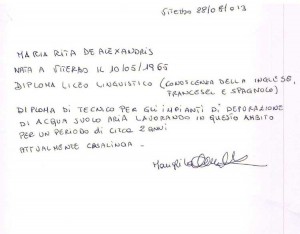 VITERBO 28/05/013
MARIA RITA DE ALEXANDRIS
NATA A VITERBO IL 10/05/1965
DIPLOMA LICEO LINGUISTICO (CONOSCENZA DELLA INGLESE,
FRANCESE E SPAGNOLO)
DIPLOMA DI TECNICO PER GLI IMPIANTI DI DEPURAZIONE
DI ACQUA SUOLO ARIA LAVORANDO IN QUESTO AMBITO
PER UN PERIODO DI CIRCA 2 ANNI
ATTUALMENTE CASALINGA.